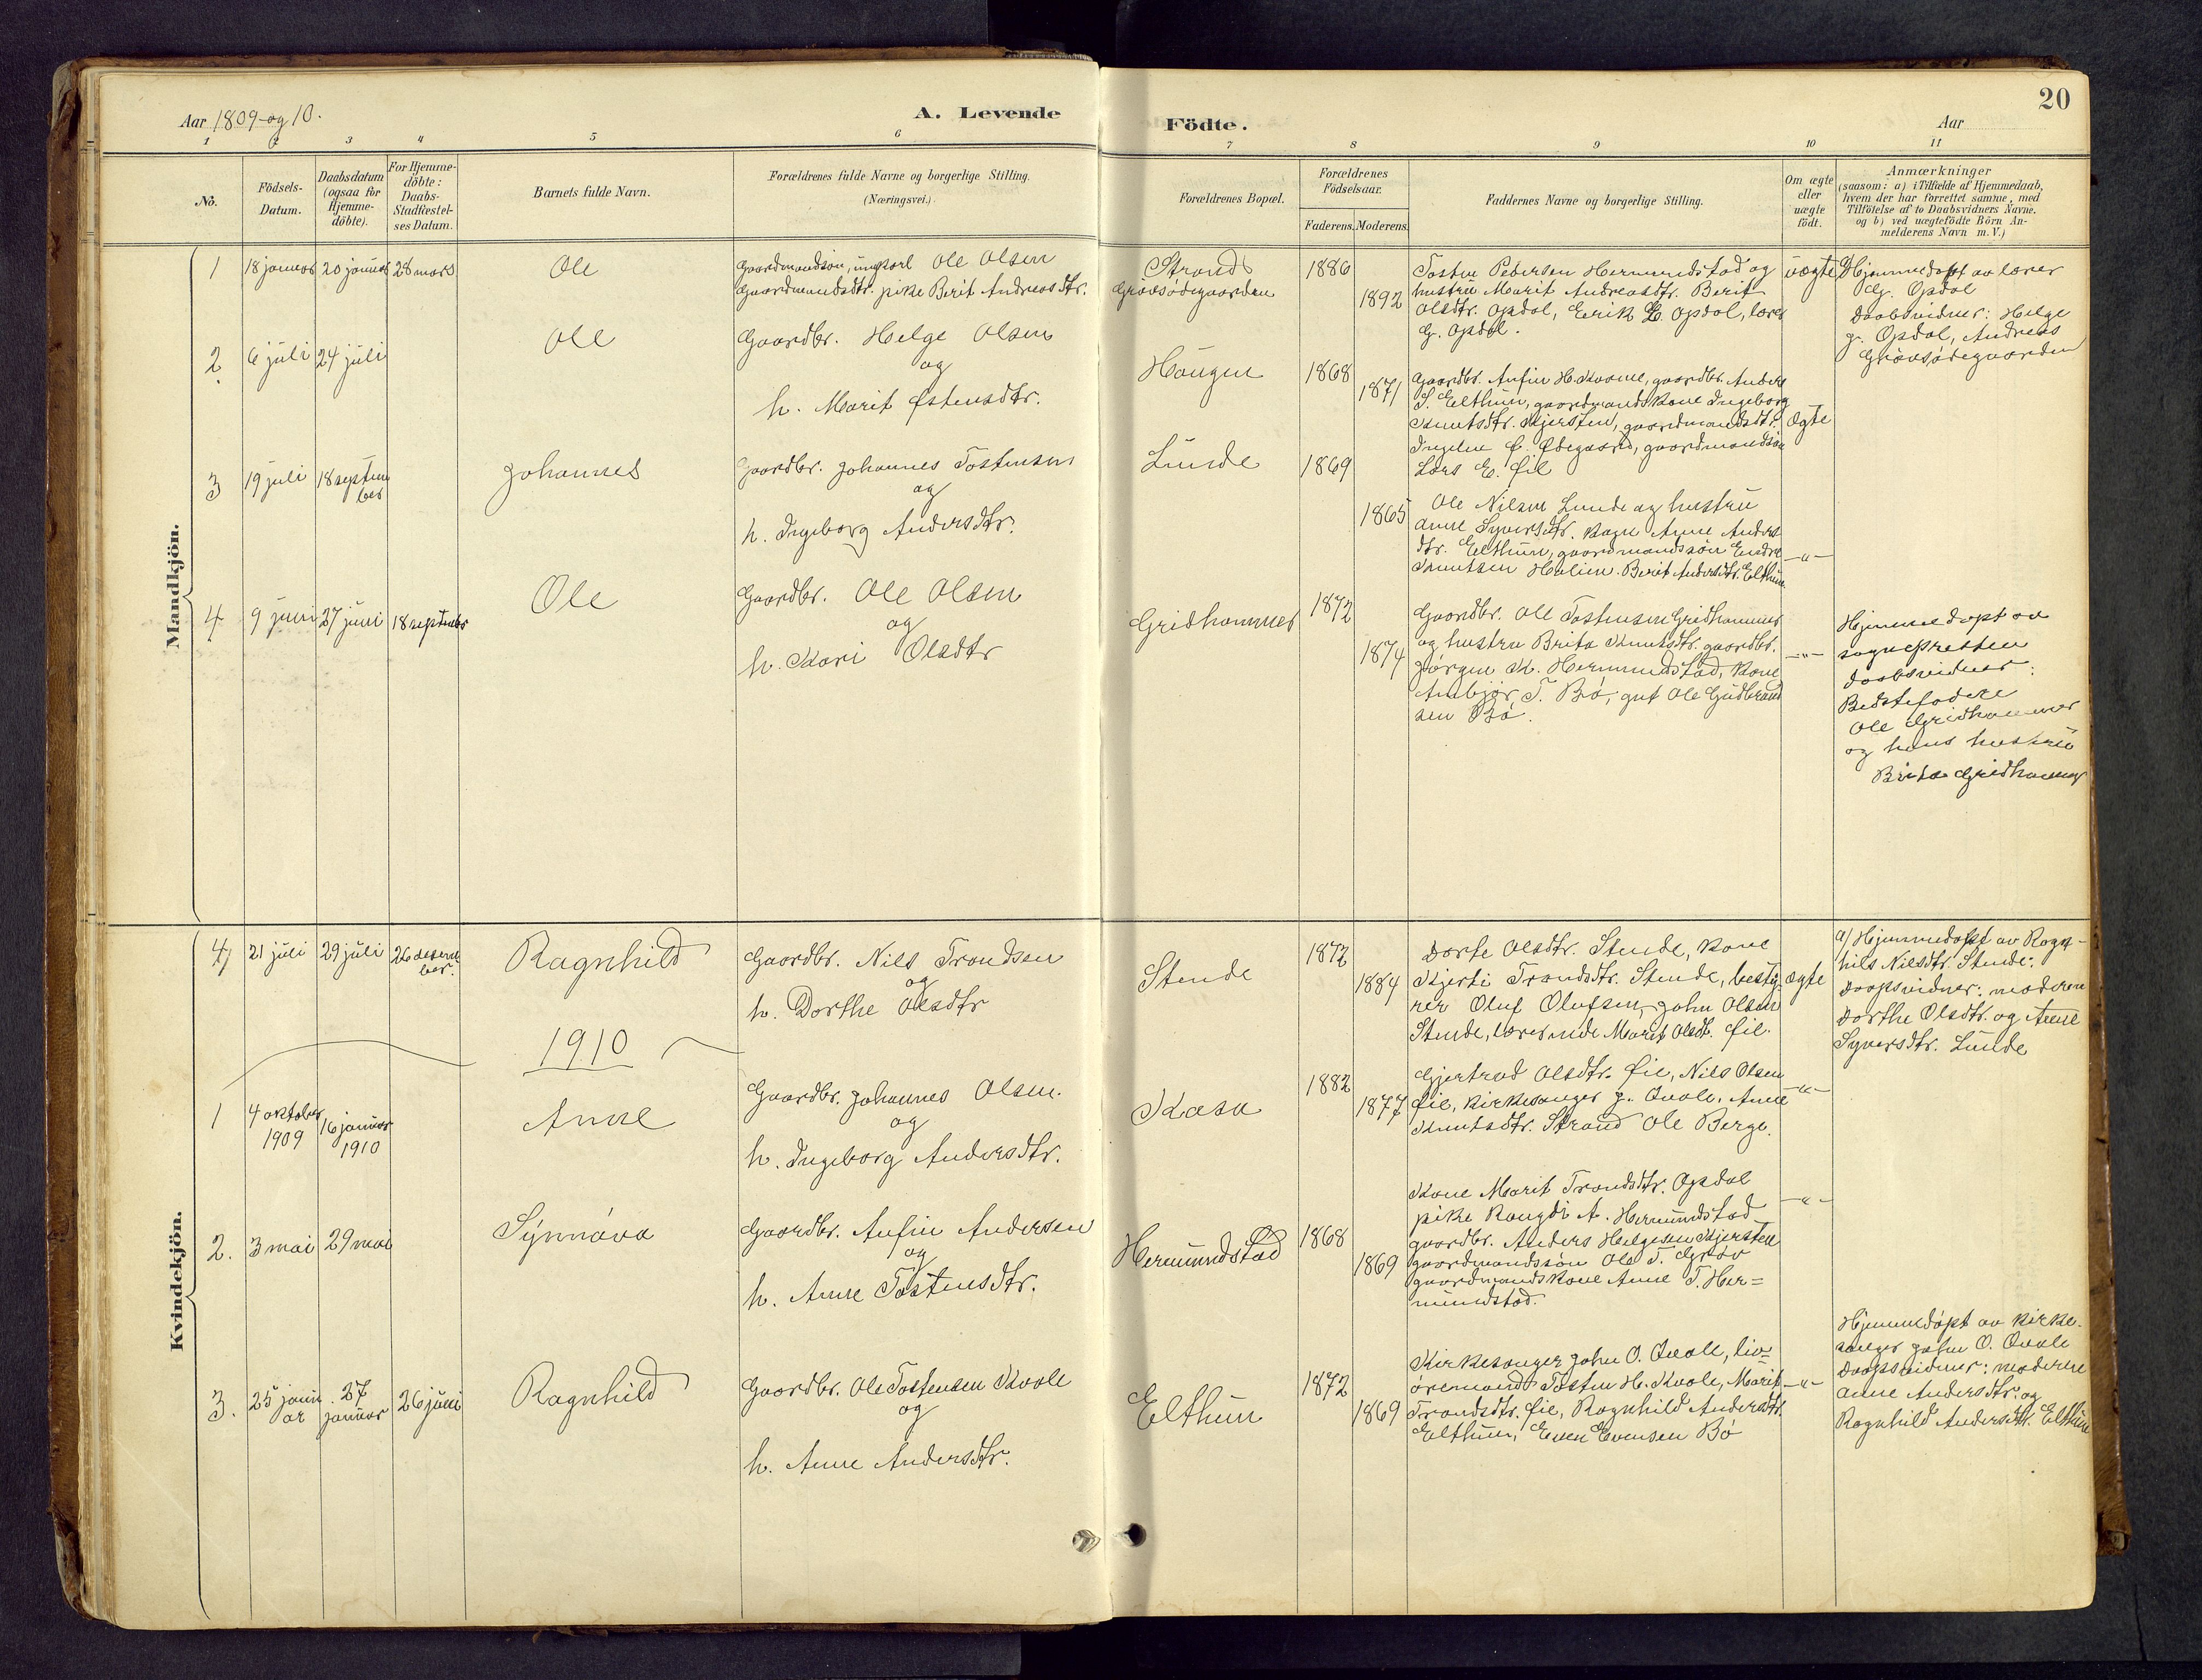 Aar 1809-og 10.
A. Levende
Födte.
Aar
20
1 2 3 4 5 6 7 8 9 10 11
No.
Födsels-
Datum.
Daabsdatum
(ogsaa for
Hjemme-
döbte).
For Hjemme-
döbte:
Daabs-
Stadfæstel-
ses Datum.
Barnets fulde Navn.
Forældrenes fulde Navne og borgerlige Stilling.
(Næringsvei.)
Forældrenes Bopæl.
Forældrenes
Födselsaar.
Faderens.
Moderens.
Faddernes Navne og borgerlige Stilling.
Om ægte
eller
uægte
födt.
Anmærkninger
(saasom: a) i Tilfælde af Hjemmedaab,
hvem der har forrettet samme, med
Tilföielse af to Daabsvidners Navne.
og b) ved uægtefödte Börn An-
melderens Navn m. V.)
Mandkjön.
1
18 januar
20 januar
28 mars
Ole
Gaardmandsön, ungkarl Ole Olsen
Gaardmandsdtr. pike Berit Andreasdtr.
Strand
Grøvsødegaarden
1886
1892
Tosten Pedersen Hermundstad og
hustru Marit Andreasdtr. Berit
Olsdtr. Opdal, Eerik E. Opdal, lærer
G. Opdal.
uægte
Hjemmedøpt av lærer
G. Opdal
Daabsvidner: Helge
g. Opdal, Andreas
Grøvsødegaarden
2
6 juli
24 juli
Ole
Gaardbr. Helge Olsen
og
h. Marit Østensdtr.
Haugen
1868
1871
Gaardbr. Anfin H. Kvame, gaardbr. Anders
S. Elthun, gaardmandskone Ingeborg
Knutsdtr. Kjersten, gaardmandsdtr.
Ingelin E. Ødegaard, gaardmandsøn
Lars E. Øil
Ægte
3
19 juli
18 septem
ber
Johannes
Gaardbr. Johannes Tostensen
og
h. Ingeborg Andersdtr.
Lunde
1869
1865
Ole Nilsen Lunde og hustru
Anne Syversdtr. Anne Anders
dtr. Elthun, gaardmandssøn Endre
Knutsen Berit Andersdtr. Elthun
—"—
4
9 juni
27 juni
18 september
Ole
Gaardbr. Ole Olsen
og
h. Kari Olsdtr
Gridhammer
1872
1874
Gaardbr. Ole Tostensen Gridhammer
og hustru Brita Knutsdtr. gaardbr.
Jørgen K. Hermundstad, kone
Ambjør T. Bø, gut Ole Gudbrand
sen Bø.
—"—
Hjemmedøpt av
sognepresten
Daabsvidner:
Bedstefadere
Ole Gridhammer
og hans hustru
Brita Gridhammer
Kvindekjön.
4
21 juli
29 juli
26 desem
ber.
Ragnhild
Gaardbr. Nils Trondsen
og
h. Dorthe Olsdtr
Stende
1872
1884
Dorte Olsdtr. Stende, kone
Kjersti Trondsdtr. Stende, besty-
rer Oluf Olufsen, John Olsen
Stende, lærerinde Marit Olsdtr. Øil.
ægte
a/ Hjemmedøpt av Ragn-
hild Nilsdtr. Stende.
Daapsvidner: moderen
Dorthe Olsdtr. og Anne
Syversdtr. Lunde
1910
1
4 oktober
1909
16 januar
1910
Anne
Gaardbr. Johannes Olsen.
og
h. Ingeborg Andersdtr.
Kasa
1882
1877
Gjertrud Olsdtr. Øil, Nils Olsen
Øil, kirkesanger J. Qvale, Anne
Knutsdtr. Strand Ole Berge.
—"—
2.
3 mai
29 mai
Synnøva
Gaardbr. Anfin Andersen
og
h. Anne Tostensdtr.
Hermundstad
1868
1869
Kone Marit Trondsdtr. Opdal
pike Rangdi A. Hermundstad
gaardbr. Anders Helgesen Kjersten
gaardmandssøn Ole T. Grøv
gaardmandskone Anne T. Her=
mundstad.
—"—
3.
25 janu
ar
27
januar
26 juni
Ragnhild
Gaardbr. Ole Tostensen Kvale
og
h. Anne Andersdtr.
Elthun
1872
1869
Kirkesanger John O. Qvale, liv=
øremand Tosten H. Kvale, Marit
Trondsdtr. Øil, Ragnhild Andersdtr.
Elthun, Even Evensen Bø
—"—
Hjemmedøpt av kirke-
sanger John O. Qvale
Daapsvidner: moderen
Anne Andersdtr. og
Ragnhild Andersdtr. Elthun